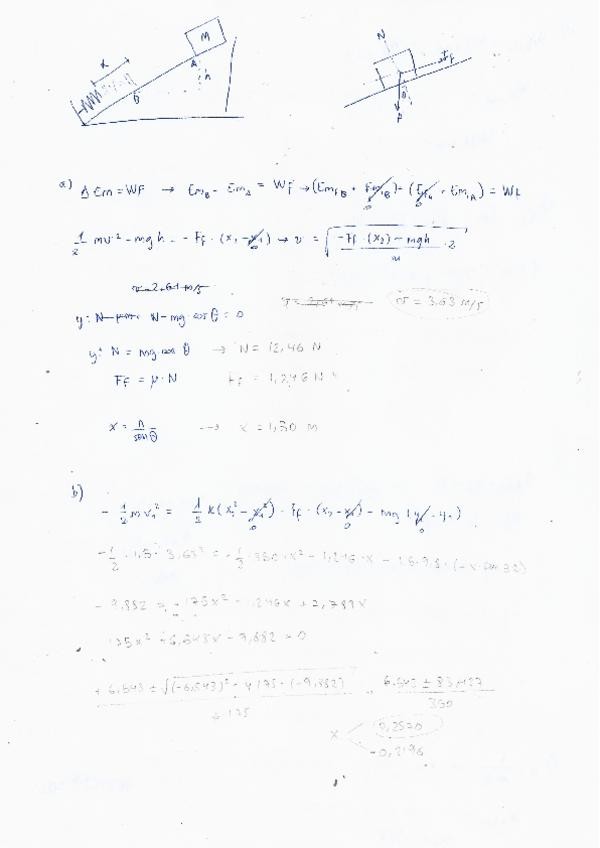 x
M
A
h
B
N
Ff
θ
P
a) ΔEm = WF → EmB - EmA = WF → (EmB + - ( + EmA) =
1/2 mv² - mgh = - Ff · (x2 - x1) → v = √(-Ff · (x2) - mgh / m · 2)
v = 2,61 m/s
v = 3,63 m/s
y: N - mg · cos θ = 0
y: N = mg cos θ → N = 12,46 N
Ff = μ · N Ff = 1,246 N
x = h / sen θ → x = 1,30 m
b)
- 1/2 m v1² = 1/2 k (x2² - x1²) · Ff · (x2 - x1) - mg (
- 1/2 · 1,5 · 3,63² = - 1/2 · 350 · x² - 1,246 · x - 1,5 · 9,8 · (-x · sen 32)
- 9,882 = - 175x² - 1,246x + 7,789x
175x² - 6,543x - 9,882 = 0
+ 6,543 ± √((-6,543)² - 4 · 175 · (-9,882))
6,543 ± 83,427
350
x
0,2570
- 0,2196